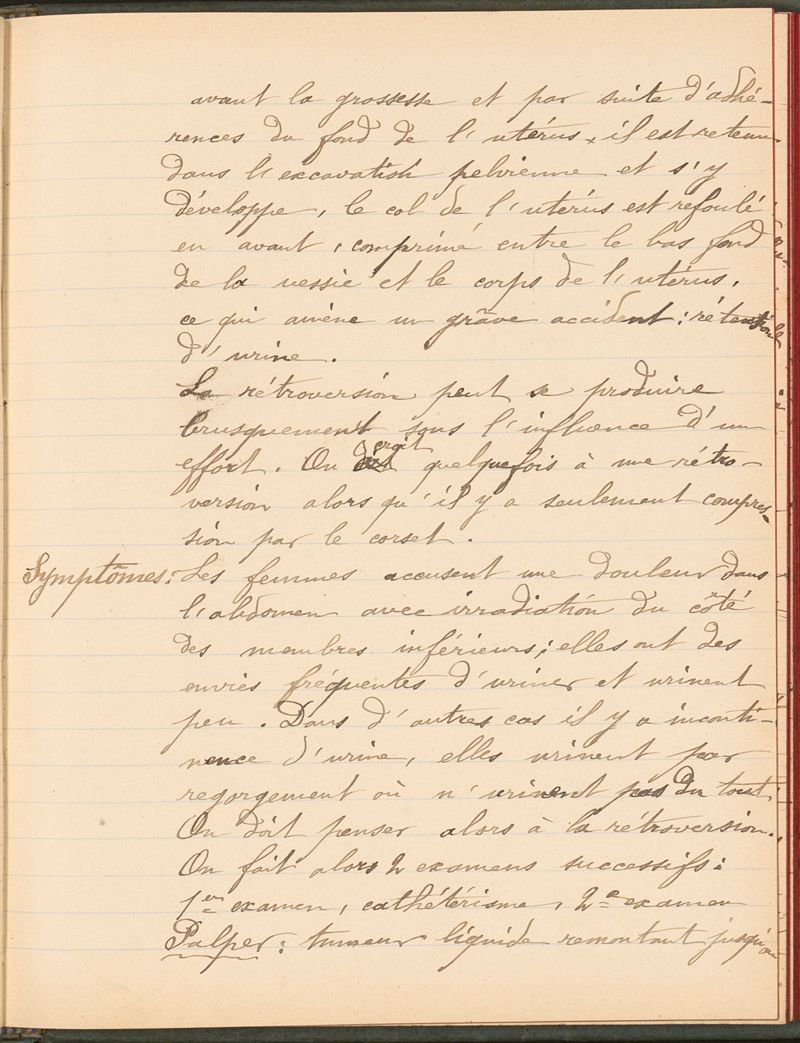 avant la grossesse et par suite d'adhé-
rences du fond de l'utérus, il est retenu
dans l'excavation pelvienne et s'y
développe, le col de l'utérus est refoulé
en avant, comprimé entre le bas fond
de la vessie et le corps de l'utérus,
ce qui amène un grave accident : rétention
d'urine.
La rétroversion peut se produire
brusquement sous l'influence d'un
effort. On croit quelquefois à une rétro-
version alors qu'il y a seulement compres-
sion par le corset.
Symptômes: Les femmes accusent une douleur dans
l'abdomen avec irradiation du côté
des membres inférieurs; elles ont des
envies fréquentes d'uriner et urinent
peu. Dans d'autres cas il y a inconti-
nence d'urine, elles urinent par
regorgement où n'urinent pas du tout.
On doit penser alors à la rétroversion.
On fait alors 2 examens successifs:
1er examen, cathétérisme, 2e examen
Palper: tumeur liquide remontant jusqu'au